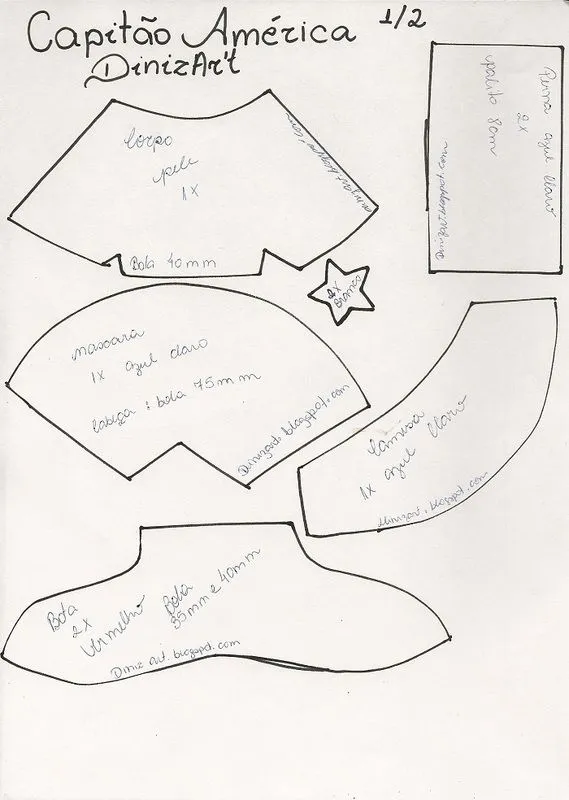 Capitão América 1/2
DinizArt
Corpo
pele
1x
dinizart.blogspot.com
Bola 40mm
Perna azul claro
2x
palito 8cm
dinizart.blogspot.com
2x
Branco
mascara
1x azul claro
cabeça: bola 75mm
Dinizarte.blogspot.com
Camisa
1x azul claro
dinizart.blogspot.com
Bota
2x
Vermelho
Bola
35mm e 40mm
Diniz art.blogspot.com